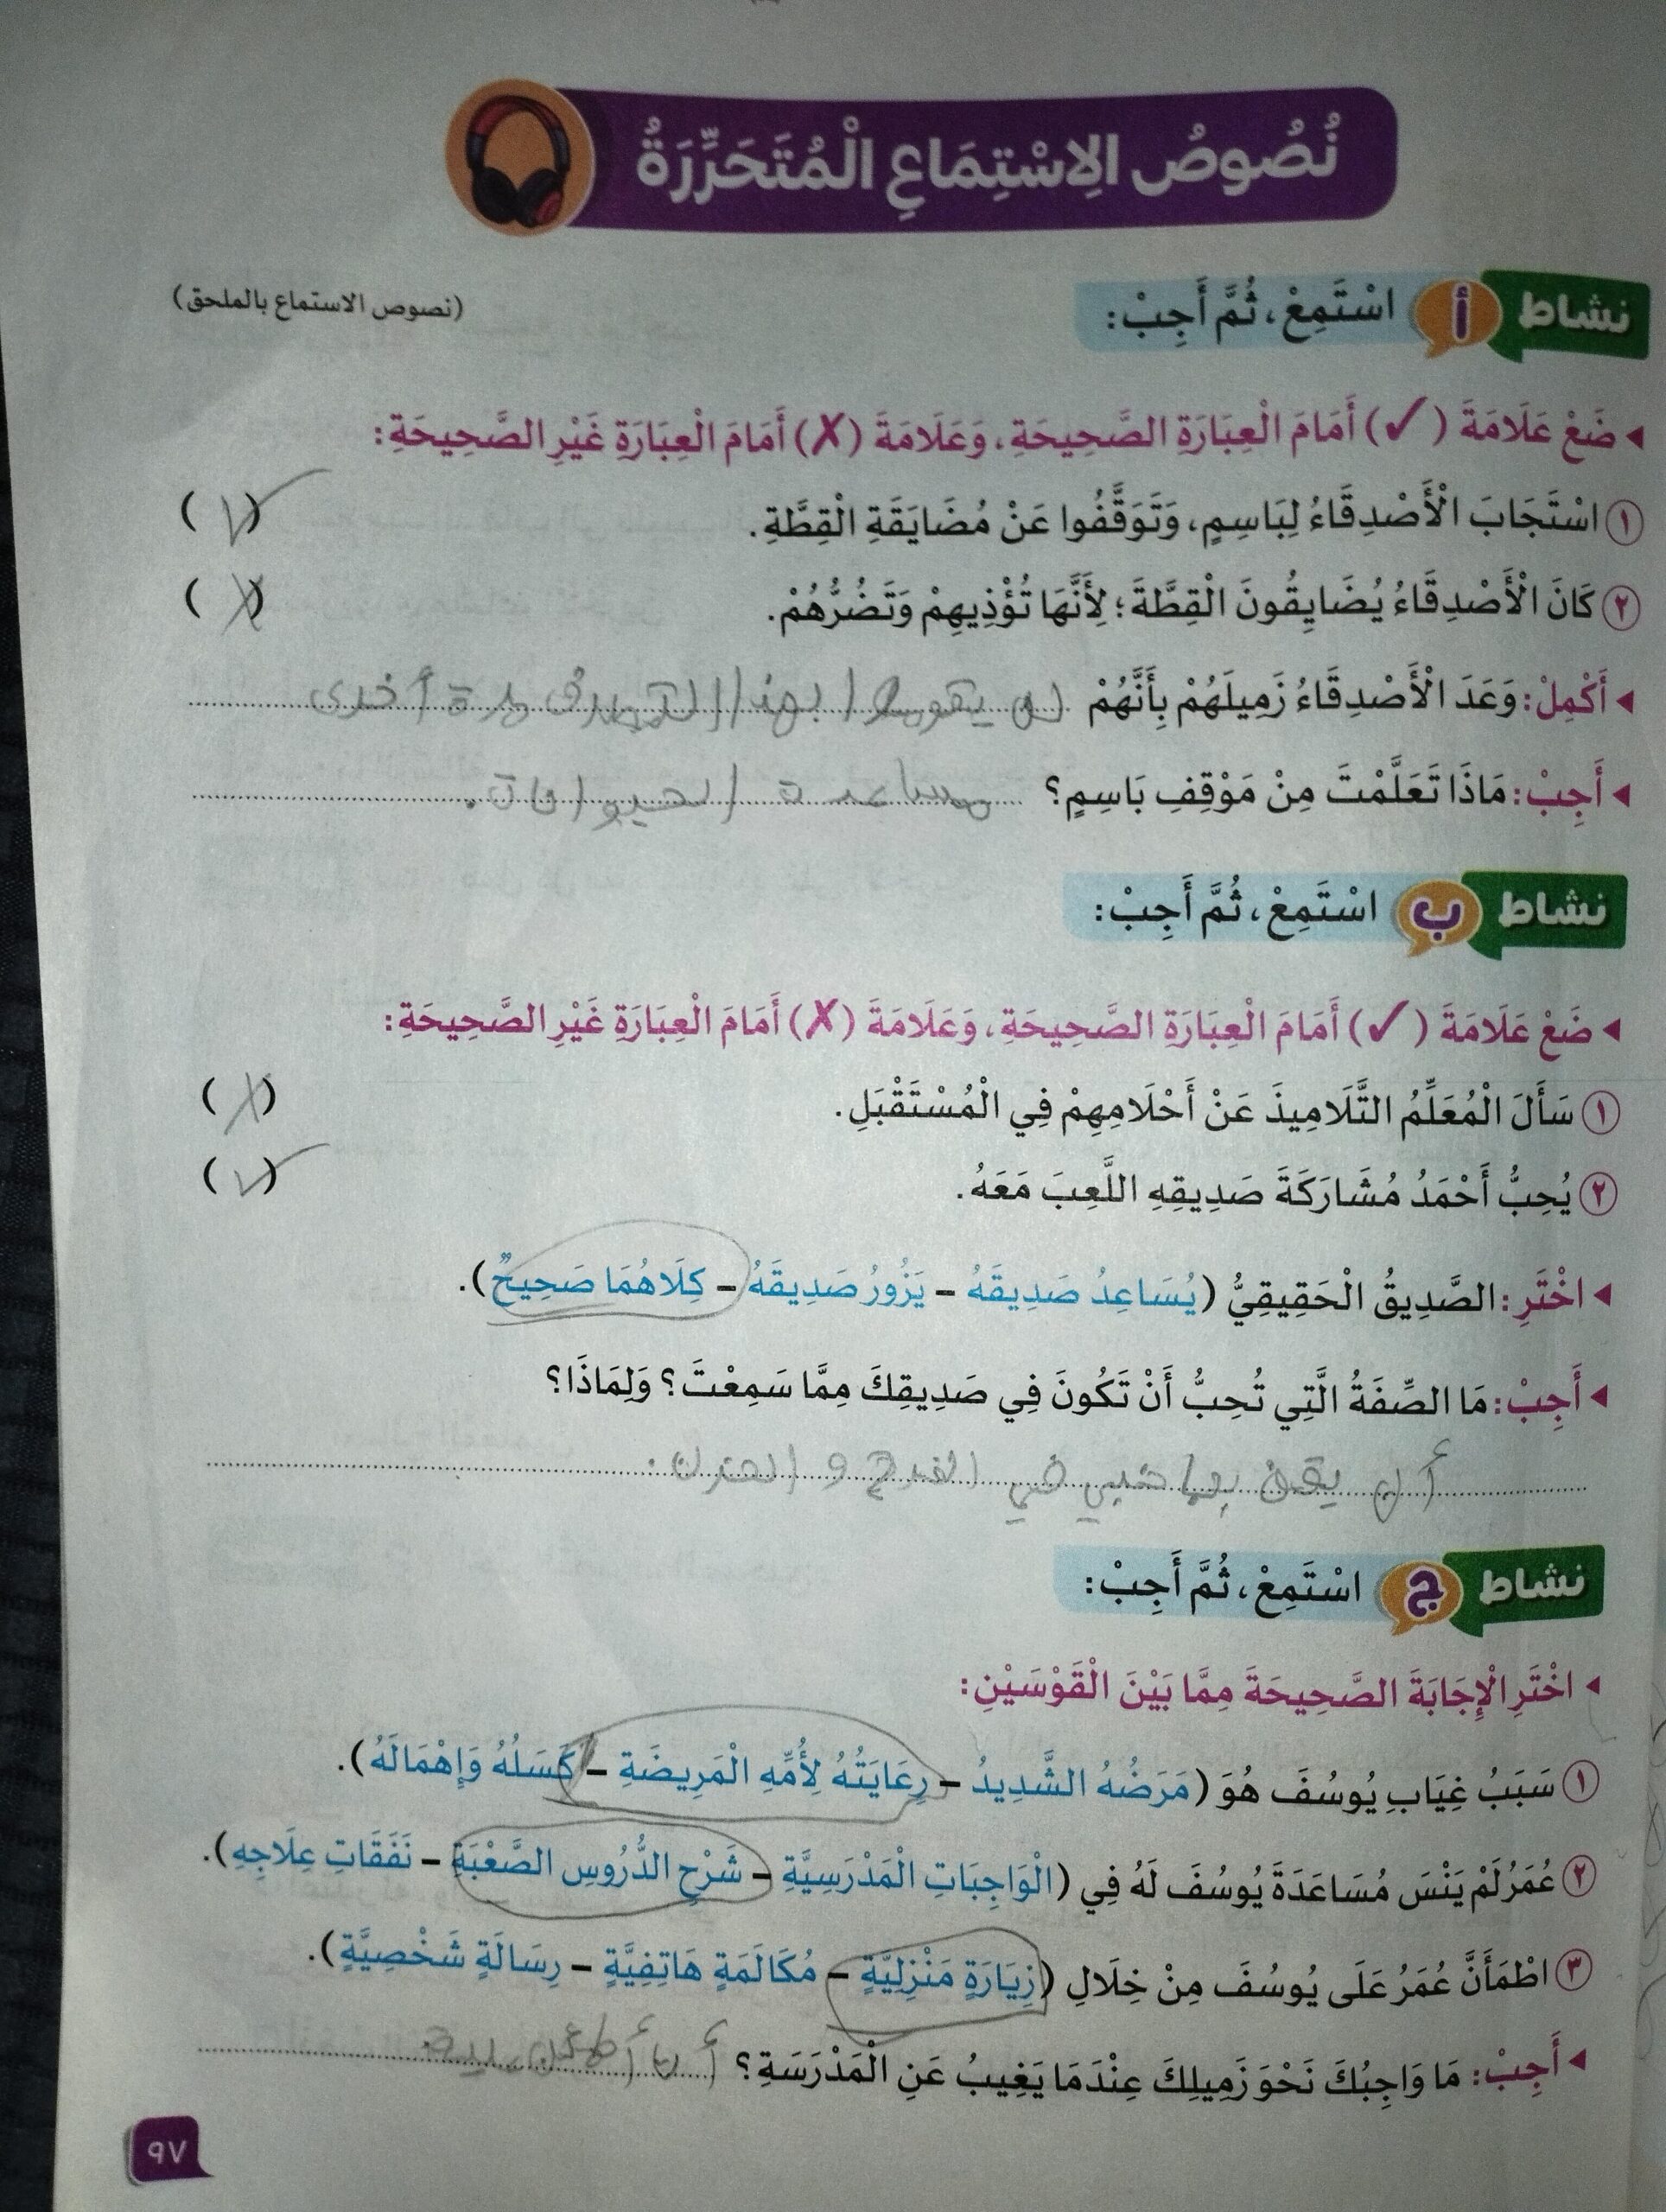 نُصُوصُ الِاسْتِمَاعِ الْمُتَحَرِّرَةُ
نشاط أ اسْتَمِعْ، ثُمَّ أَجِبْ:
(نصوص الاستماع بالملحق)
◂ ضَعْ عَلَامَةَ (✓) أَمَامَ الْعِبَارَةِ الصَّحِيحَةِ، وَعَلَامَةَ (✗) أَمَامَ الْعِبَارَةِ غَيْرِ الصَّحِيحَةِ:
١ اسْتَجَابَ الْأَصْدِقَاءُ لِبَاسِمٍ، وَتَوَقَّفُوا عَنْ مُضَايَقَةِ الْقِطَّةِ. (✓)
٢ كَانَ الْأَصْدِقَاءُ يُضَايِقُونَ الْقِطَّةَ؛ لِأَنَّهَا تُؤْذِيهِمْ وَتَضُرُّهُمْ. (✗)
◂ أَكْمِلْ: وَعَدَ الْأَصْدِقَاءُ زَمِيلَهُمْ بِأَنَّهُمْ لن يقوموا بهذا التصرف مرة أخرى
◂ أَجِبْ: مَاذَا تَعَلَّمْتَ مِنْ مَوْقِفِ بَاسِمٍ؟ مساعدة الحيوانات.
نشاط ب اسْتَمِعْ، ثُمَّ أَجِبْ:
◂ ضَعْ عَلَامَةَ (✓) أَمَامَ الْعِبَارَةِ الصَّحِيحَةِ، وَعَلَامَةَ (✗) أَمَامَ الْعِبَارَةِ غَيْرِ الصَّحِيحَةِ:
١ سَأَلَ الْمُعَلِّمُ التَّلَامِيذَ عَنْ أَحْلَامِهِمْ فِي الْمُسْتَقْبَلِ. (✗)
٢ يُحِبُّ أَحْمَدُ مُشَارَكَةَ صَدِيقِهِ اللَّعِبَ مَعَهُ. (✓)
◂ اخْتَرِ: الصَّدِيقُ الْحَقِيقِيُّ (يُسَاعِدُ صَدِيقَهُ – يَزُورُ صَدِيقَهُ – كِلَاهُمَا صَحِيحٌ).
◂ أَجِبْ: مَا الصِّفَةُ الَّتِي تُحِبُّ أَنْ تَكُونَ فِي صَدِيقِكَ مِمَّا سَمِعْتَ؟ وَلِمَاذَا؟
أن يقف بجانبي في الفرح و الحزن.
نشاط ج اسْتَمِعْ، ثُمَّ أَجِبْ:
◂ اخْتَرِ الْإِجَابَةَ الصَّحِيحَةَ مِمَّا بَيْنَ الْقَوْسَيْنِ:
١ سَبَبُ غِيَابِ يُوسُفَ هُوَ (مَرَضُهُ الشَّدِيدُ – رِعَايَتُهُ لِأُمِّهِ الْمَرِيضَةِ – كَسَلُهُ وَإِهْمَالَهُ).
٢ عُمَرُ لَمْ يَنْسَ مُسَاعَدَةَ يُوسُفَ لَهُ فِي (الْوَاجِبَاتِ الْمَدْرَسِيَّةِ – شَرْحِ الدُّرُوسِ الصَّعْبَةِ – نَفَقَاتِ عِلَاجِهِ).
٣ اطْمَأَنَّ عُمَرُ عَلَى يُوسُفَ مِنْ خِلَالِ (زِيَارَةٍ مَنْزِلِيَّةٍ – مُكَالَمَةٍ هَاتِفِيَّةٍ – رِسَالَةٍ شَخْصِيَّةٍ).
◂ أَجِبْ: مَا وَاجِبُكَ نَحْوَ زَمِيلِكَ عِنْدَمَا يَغِيبُ عَنِ الْمَدْرَسَةِ؟ أن أطمئن
٩٧